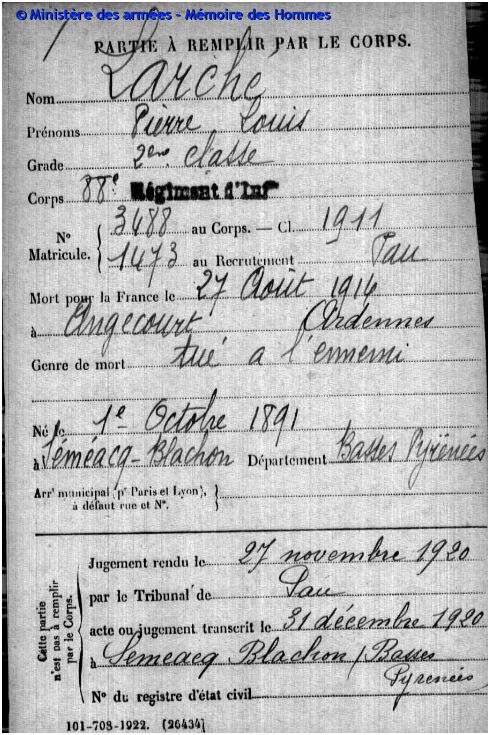 © Ministère des armées - Mémoire des Hommes
PARTIE À REMPLIR PAR LE CORPS.
Nom Larché
Prénoms Pierre Louis
Grade 2ème classe
Corps 88e Régiment d'Infie
3488 au Corps. — Cl. 1911
N° Matricule.
1473 au Recrutement Pau
Mort pour la France le 27 Août 1914
à Angecourt Ardennes
Genre de mort tué a l'ennemi
Né le 1e Octobre 1891
à Séméacq-Blachon Département Basses Pyrénées
Arrt municipal (pr Paris et Lyon),
à défaut rue et N°.
Cette partie n'est pas à remplir par le Corps.
Jugement rendu le 27 novembre 1920
par le Tribunal de Pau
acte ou jugement transcrit le 31 décembre 1920
à Séméacq Blachon (Basses
Pyrénées
N° du registre d'état civil
101-708-1922. [26434]